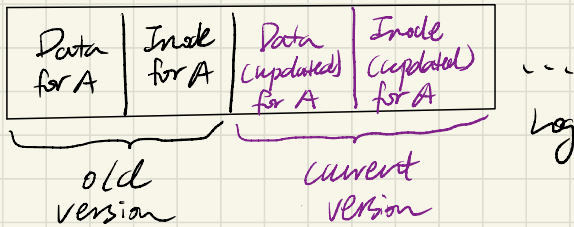 Data
for A
Inode
for A
Data
(updated)
for A
Inode
(updated)
for A
...
Log
old
version
current
version